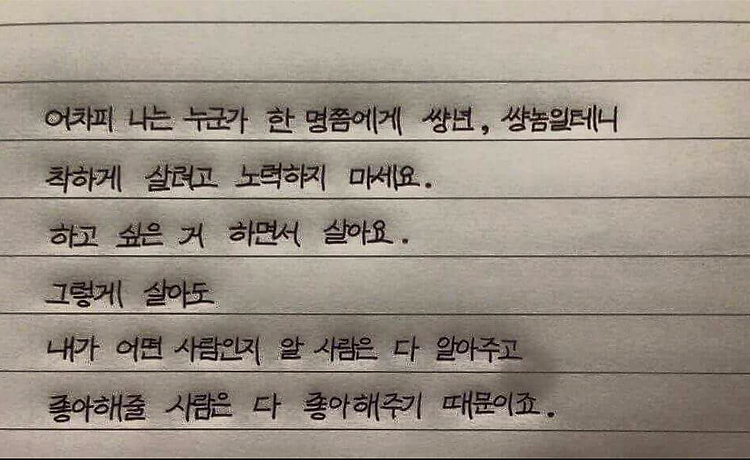 어차피 나는 누군가 한 명쯤에게 쌍년, 썅놈일테니
착하게 살려고 노력하지 마세요.
하고 싶은 거 하면서 살아요.
그렇게 살아도
내가 어떤 사람인지 알 사람은 다 알아주고
좋아해줄 사람은 다 좋아해주기 때문이죠.